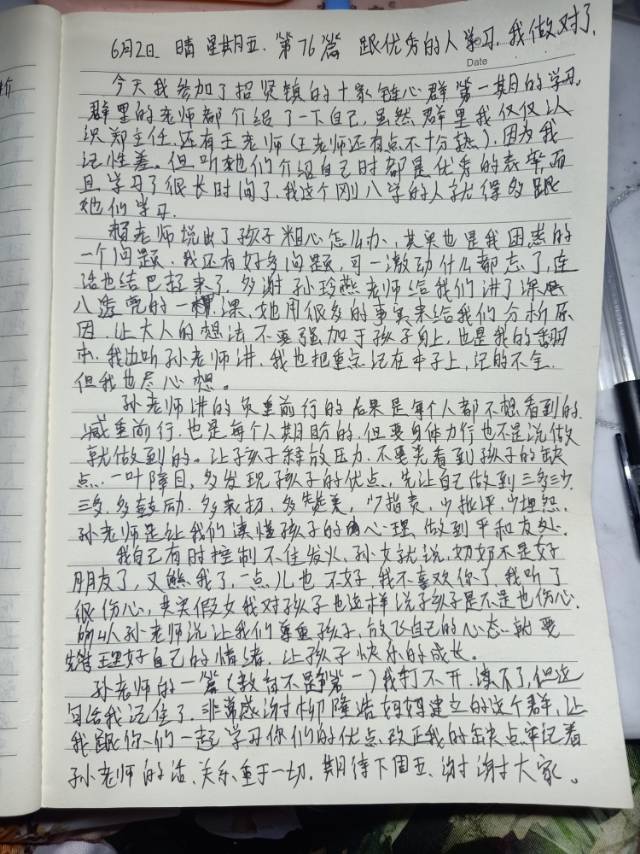 6月2日 晴 星期五 第76篇 跟优秀的人学习.我做对了.
Date
今天我参加了招贤镇的十家链心群第一期的学习.
群里的老师都介绍了一下自己.虽然群里我仅仅认
识郑主任.还有王老师(王老师还有点不十分熟).因为我
记性差。但听她们介绍自己时都是优秀的表率而
且学习了很长时间了.我这个刚入学的人就得多跟
她们学习.
赖老师说出了孩子粗心怎么办、其实也是我困惑的
一个问题.我还有好多问题,可一激动什么都忘了,连
话也结巴起来了,多谢孙玲燕老师给我们讲了深
入透的一课.她用很多的事实来给我们分析原
因.让大人的想法不要强加于孩子身上,也是我的
本.我边听孙老师讲.我也把重点记在本子上,记的不全
但我也尽心想。
孙老师讲的负重前行的后果是每个人都不想看到的.
减重前行.也是每个人期盼的.但要身体力行也不是说做
就做到的。让孩子释放压力.不要光看到孩子的缺
点.一叶障目,多发现孩子的优点.先让自己做到三多三少
三多.多鼓励.多表扬,多赞美,少指责,少批评,少埋怨.
孙老师是让我们读懂孩子的内心理,做到平和友处.
我自己有时控制不住发火,孙女就说.奶奶不是好
朋友了,又熊我了,一点儿也不好.我不喜欢你了,我听了
很伤心,其实假如我对孩子也这样说孩子是不是也伤心.
所以孙老师说让我们尊重孩子,放飞自己的心态.就要
先管理好自己的情绪.让孩子快乐的成长。
孙老师的一篇(教育不是第一)我打不开.读不了,但这
句给我记住了.非常感谢柳隆浩妈妈建立的这个群,让
我跟你们一起学习你们的优点.改正我的缺点牢记着
孙老师的话、关系重于一切.期待下周五、谢谢大家。